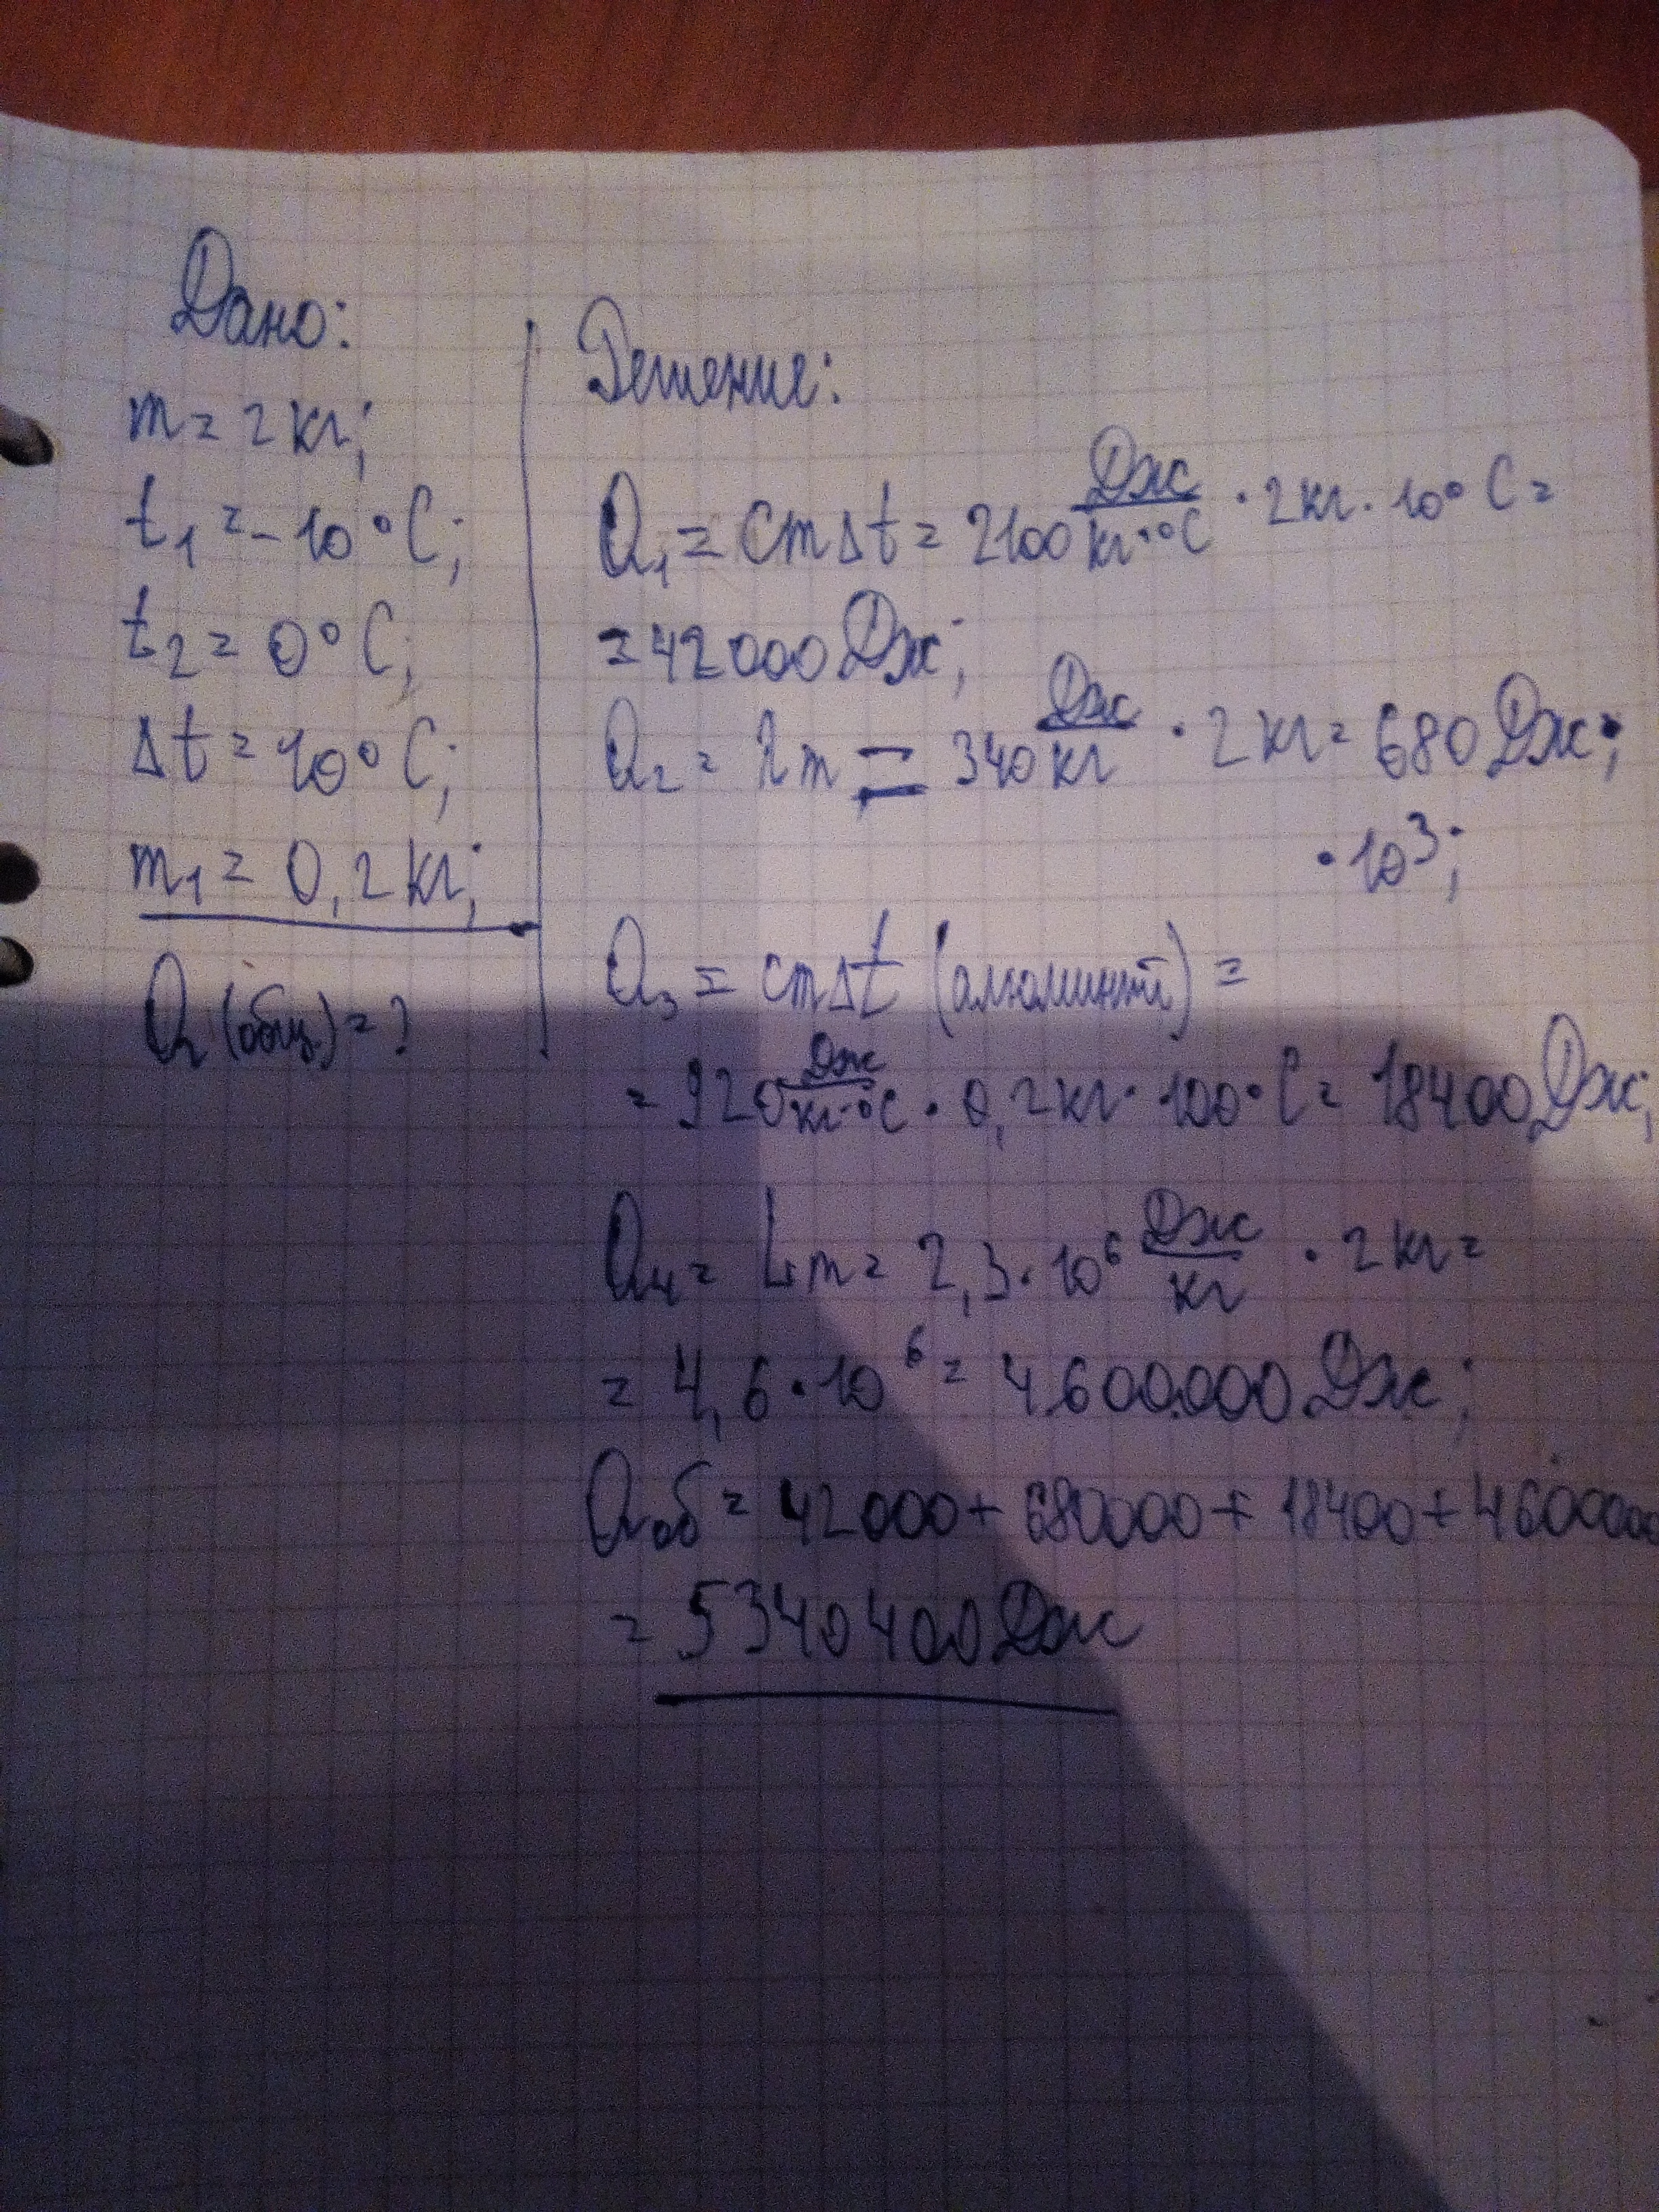 Дано:
m = 2 кг;
t₁ = -10°C;
t₂ = 0°C;
Δt = 10°C;
m₁ = 0,2 кг;
Q (общ.) = ?
Решение:
Q₁ = cmΔt = 2100 Дж/кг·°C · 2кг · 10°C =
= 42000 Дж;
Q₂ = λm = 340 Дж/кг · 2 кг = 680 Дж;
· 10³;
Q₃ = cmΔt (алюминий) =
= 920 Дж/кг·°C · 0,2кг · 100°C = 18400 Дж;
Q₄ = Lm = 2,3·10⁶ Дж/кг · 2 кг =
= 4,6·10⁶ = 4.600.000 Дж;
Qоб = 42000 + 680000 + 18400 + 4600000
= 5340400 Дж